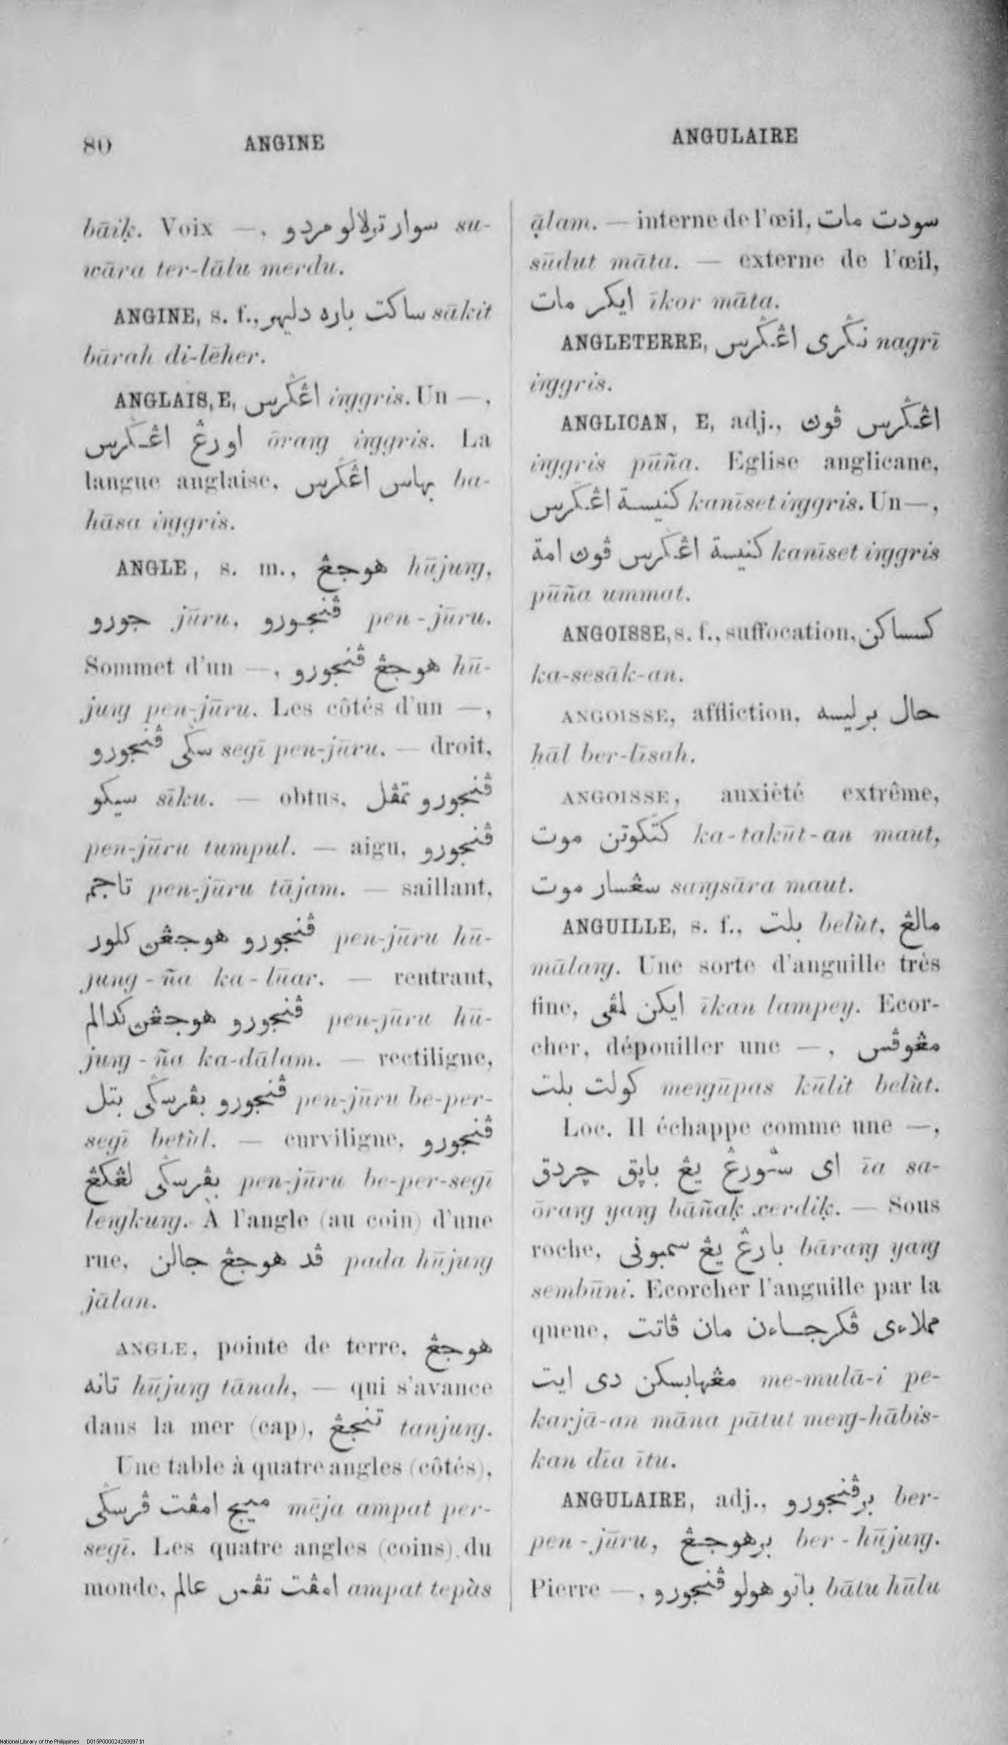 80 ANGINE
ANGULAIRE
bāiḳ. Voix —, سوار ترلالو مردو su-
wāra ter-lālu merdu.
ANGINE, s. f., ساكت باره دليهر sākit
bārah di-lēher.
ANGLAIS, E, اڠݢريس iṅggris. Un —,
اورڠ اڠݢريس ōraṅg iṅggris. La
langue anglaise, بهاس اڠݢريس ba-
hāsa iṅggris.
ANGLE, s. m., هوجڠ hūjuṅg,
جورو jūru, ڤنجورو pen-jūru.
Sommet d'un —, هوجڠ ڤنجورو hū-
juṅg pen-jūru. Les côtés d'un —,
سݢى ڤنجورو segī pen-jūru. — droit,
سيكو sīku. — obtus, ڤنجورو تمڤل
pen-jūru tumpul. — aigu, ڤنجورو
تاجم pen-jūru tājam. — saillant,
ڤنجورو هوجڠن كلور pen-jūru hū-
jung-ña ka-lūar. — rentrant,
ڤنجورو هوجڠن كدالم pen-jūru hū-
juṅg-ña ka-dālam. — rectiligne,
ڤنجورو بڤرسݢى بتل pen-jūru be-per-
segī betùl. — curviligne, ڤنجورو
بڤرسݢى لڠكڠ pen-jūru be-per-segī
leṅgkuṅg. A l'angle (au coin) d'une
rue, ڤد هوجڠ جالن pada hūjuṅg
jālan.
ANGLE, pointe de terre, هوجڠ
تانه hūjuṅg tānah, — qui s'avance
dans la mer (cap), تنجڠ tanjuṅg.
Une table à quatre angles (côtés),
ميج امڤت ڤرسݢى mēja ampat per-
segī. Les quatre angles (coins) du
monde, امڤت تڤس عالم ampat tepàs
ạ̄lam. — interne de l'œil, سودت مات
sūdut māta. — externe de l'œil,
ايكر مات īkor māta.
ANGLETERRE, نݢرى اڠݢريس nagrī
iṅggris.
ANGLICAN, E, adj., اڠݢريس ڤوڽ
iṅggris pūña. Eglise anglicane,
كنيسة اڠݢريس kanīset iṅggris. Un —,
كنيسة اڠݢريس ڤوڽ امة kanīset iṅggris
pūña ummat.
ANGOISSE, s. f., suffocation, كسساكن
ka-sesāk-an.
ANGOISSE, affliction, حال برليسه
ḥāl ber-līsah.
ANGOISSE, anxiété extrême,
كتكوتن موت ka-takūt-an maut,
سڠسار موت saṅgsāra maut.
ANGUILLE, s. f., بلت belùt, مالڠ
mālaṅg. Une sorte d'anguille très
fine, ايكن لمڤى īkan lampey. Ecor-
cher, dépouiller une —, مڠوڤس
كولت بلت meṅgūpas kūlit belùt.
Loc. Il échappe comme une —,
اى سأورڠ يڠ باڽق چردق īa sa-
ōraṅg yaṅg bāñaḳ xerdiḳ. — Sous
roche, بارڠ يڠ سمبونى bāraṅg yaṅg
sembūni. Ecorcher l'anguille par la
queue, مملاءى ڤكرجاءن مان ڤاتت
مڠهابسكن دى ايت me-mulā-i pe-
karjā-an māna pātut meṅg-hābis-
kan dīa ītu.
ANGULAIRE, adj., برڤنجورو ber-
pen-jūru, برهوجڠ ber-hūjuṅg.
Pierre —, باتو هولو ڤنجورو bātu hūlu
National Library of the Philippines